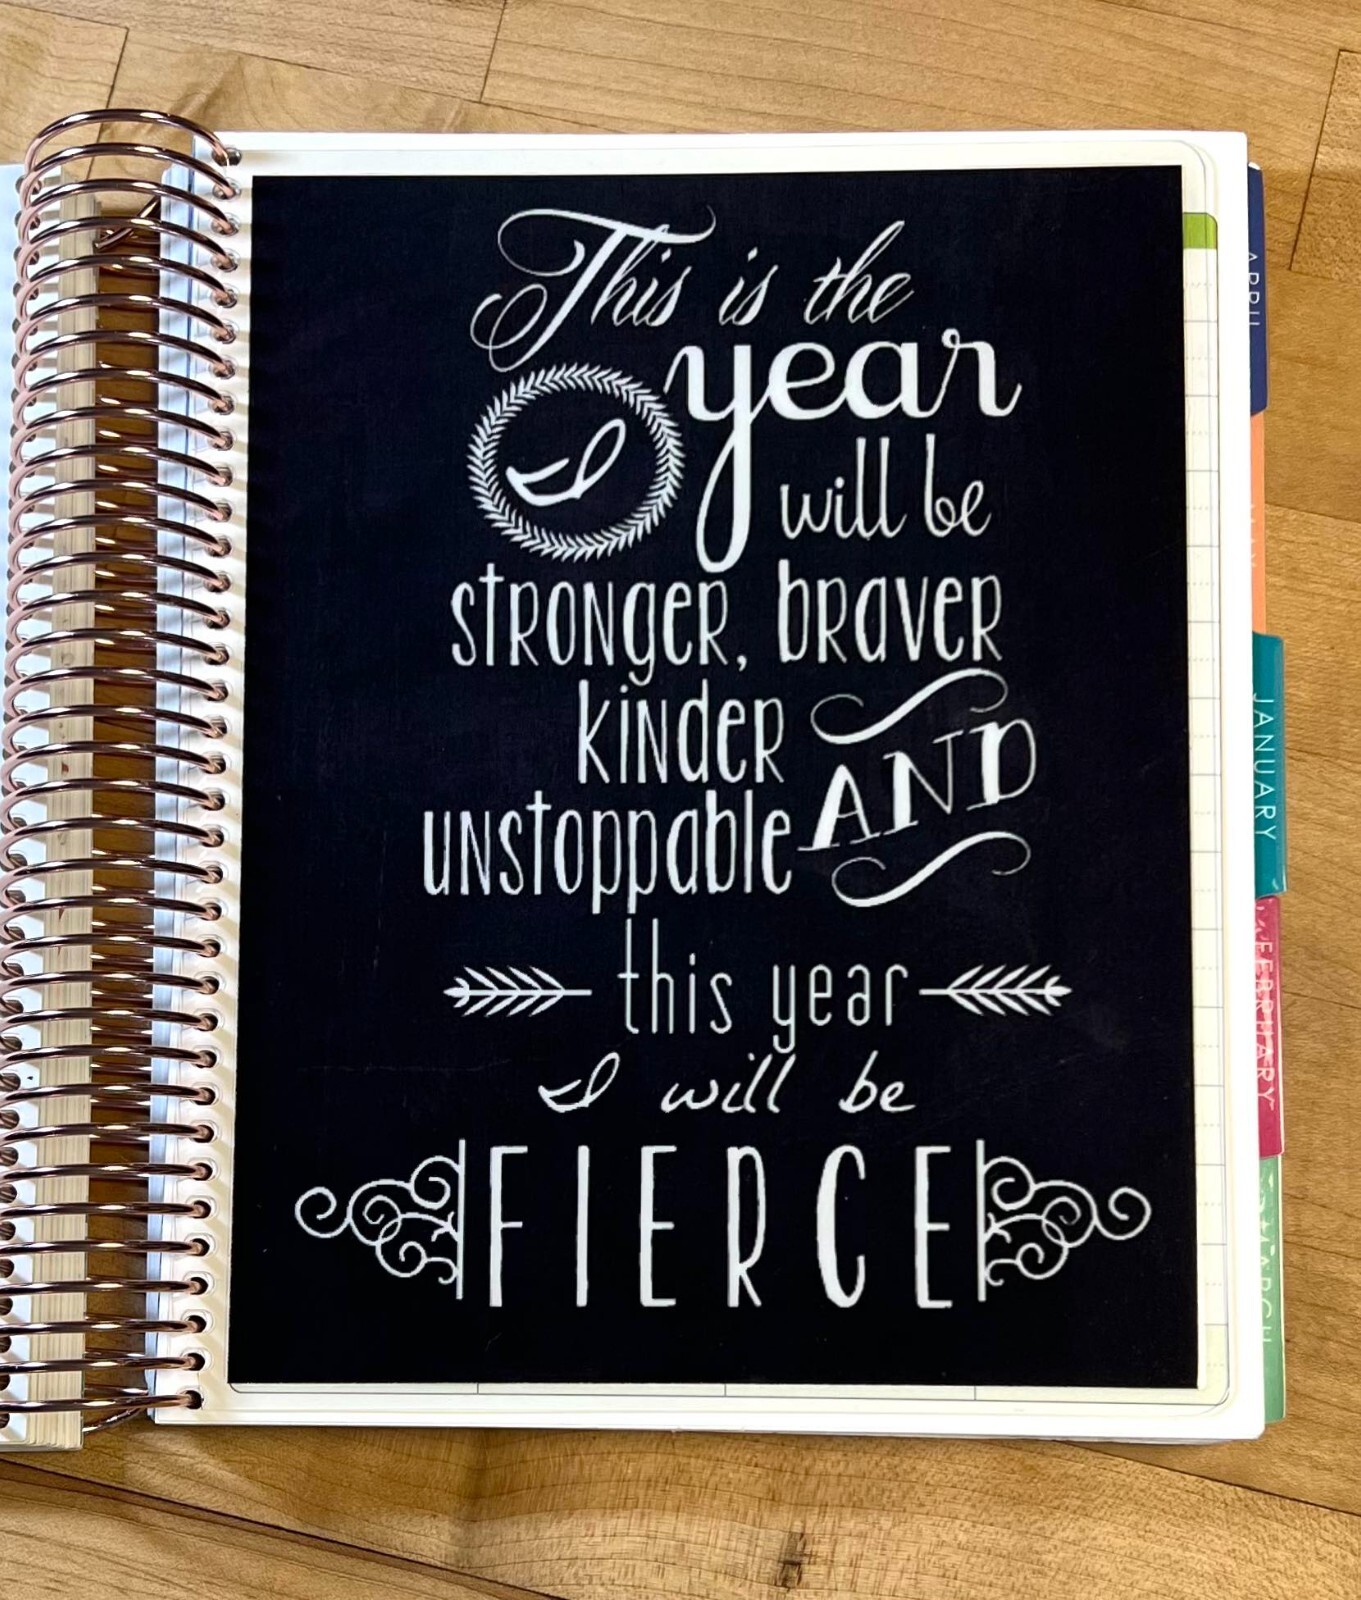 This is the
year
I
will be
stronger, braver
kinder AND
unstoppable
this year
I will be
FIERCE
APRIL
MAY
JANUARY
FEBRUARY
MARCH